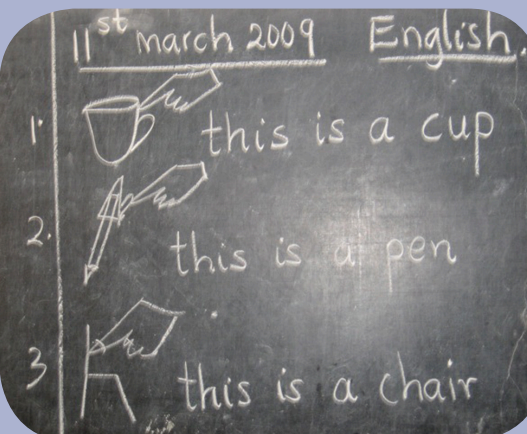 11st march 2009 English.
1. this is a cup
2. this is a pen
3 this is a chair